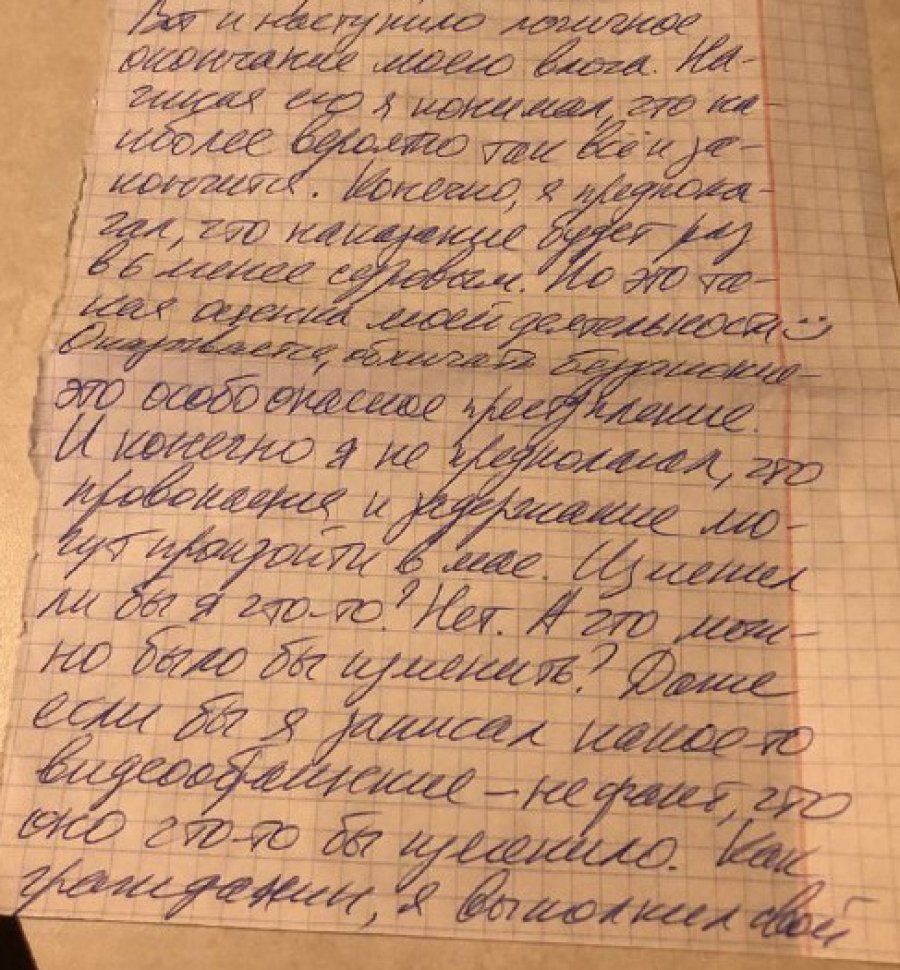 Вот и наступило логичное
окончание моего влога. На-
чиная его я понимал, что на-
иболее вероятно так всё и за-
кончится. Конечно, я предпола-
гал, что наказание будет раз
в 6 менее суровым. Но это та-
кая оценка моей деятельности:)
Оказывается, обличать беззаконие-
это особо опасное преступление.
И конечно я не предполагал, что
провокация и задержание мо-
гут произойти в мае. Изменил
ли бы я что-то? Нет. А что мож-
но было бы изменить? Даже
если бы я записал какое-то
видеообращение – не факт, что
оно что-то бы изменило. Как
гражданин, я выполнил свой